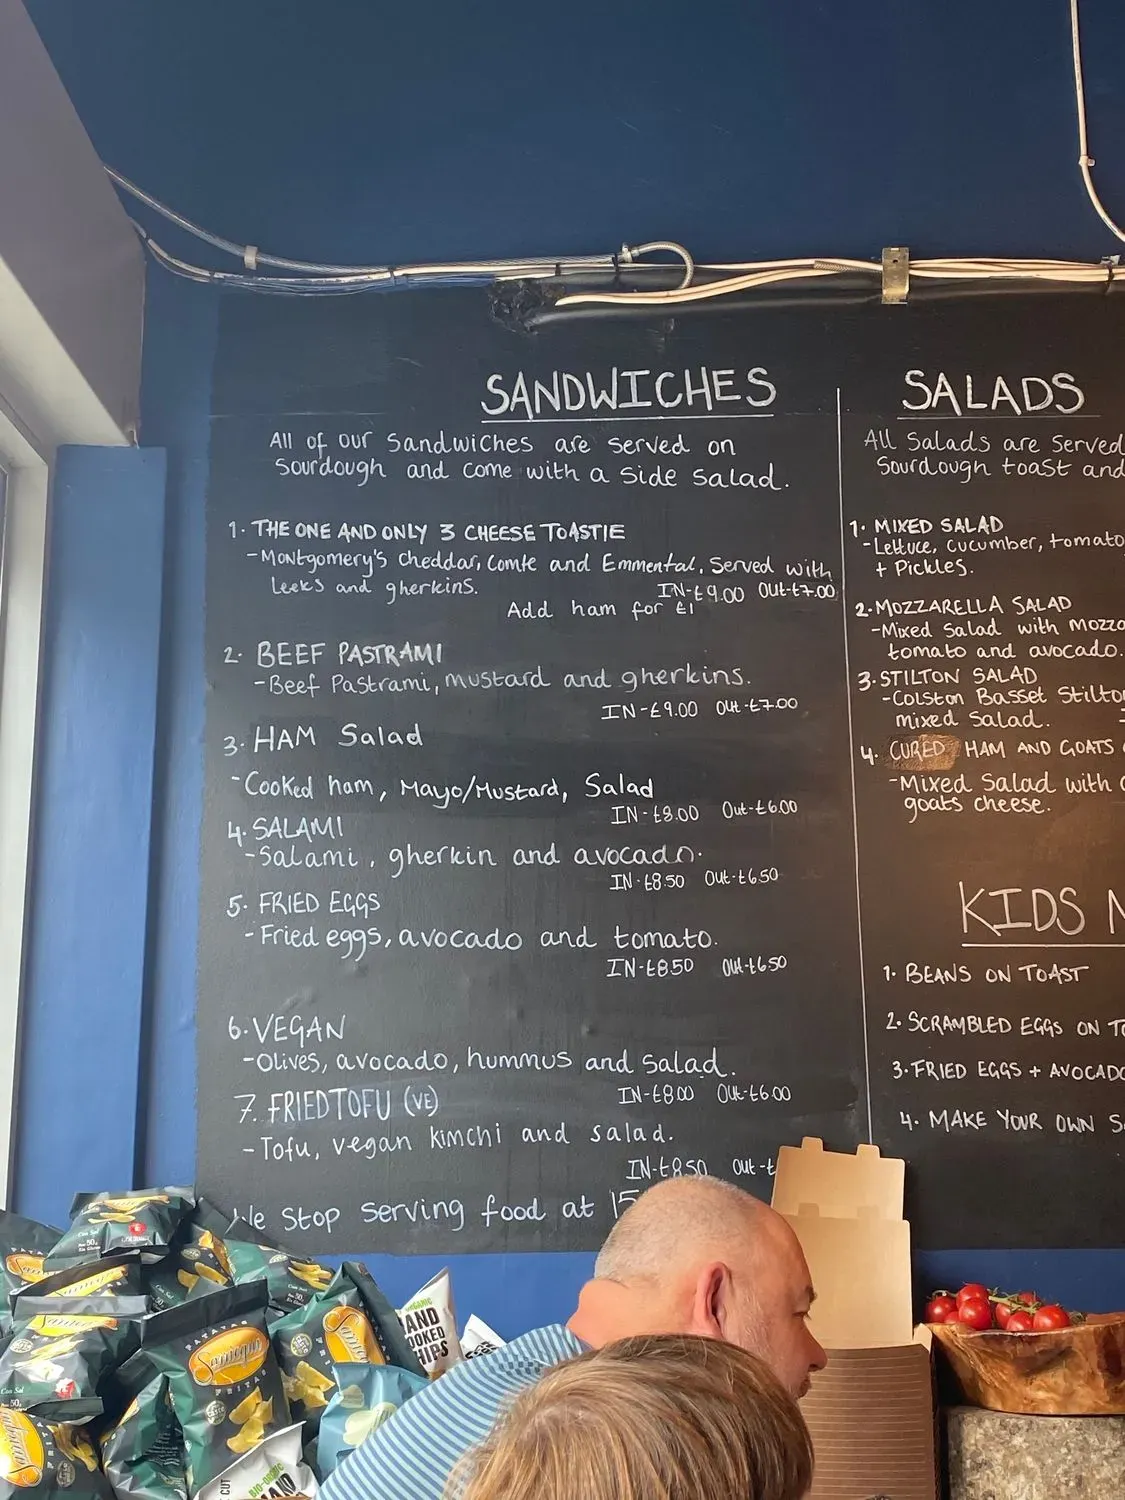 SANDWICHES
All of our Sandwiches are served on
Sourdough and come with a Side Salad.
1. THE ONE AND ONLY 3 CHEESE TOASTIE
- Montgomery's Cheddar, Comte and Emmental, Served with
Leeks and gherkins.
IN-£9.00 Out-£7.00
Add ham for £1
2. BEEF PASTRAMI
- Beef Pastrami, mustard and gherkins.
IN-£9.00 Out-£7.00
3. HAM Salad
- Cooked ham, Mayo/Mustard, Salad
IN-£8.00 Out-£6.00
4. SALAMI
- Salami, gherkin and avocado.
IN-£8.50 Out-£6.50
5. FRIED EGGS
- Fried eggs, avocado and tomato.
IN-£8.50 Out-£6.50
6. VEGAN
- Olives, avocado, hummus and salad.
IN-£8.00 Out-£6.00
7. FRIED TOFU (VE)
- Tofu, vegan kimchi and salad.
IN-£8.50 Out-£
We Stop serving food at 15
SALADS
All Salads are Served
Sourdough toast and
1. MIXED SALAD
- Lettuce, cucumber, tomato
+ Pickles.
2. MOZZARELLA SALAD
- Mixed Salad with Mozza
tomato and avocado.
3. STILTON SALAD
- Colston Basset Stilto
mixed Salad.
4. CURED HAM AND GOATS
- Mixed Salad with
goats cheese.
KIDS
1. BEANS ON TOAST
2. SCRAMBLED EGGS ON TO
3. FRIED EGGS + AVOCADO
4. MAKE YOUR OWN S
PATATAS
FRITAS
Con Sal
BIO-ORGANIC
HAND
COOKED
CHIPS